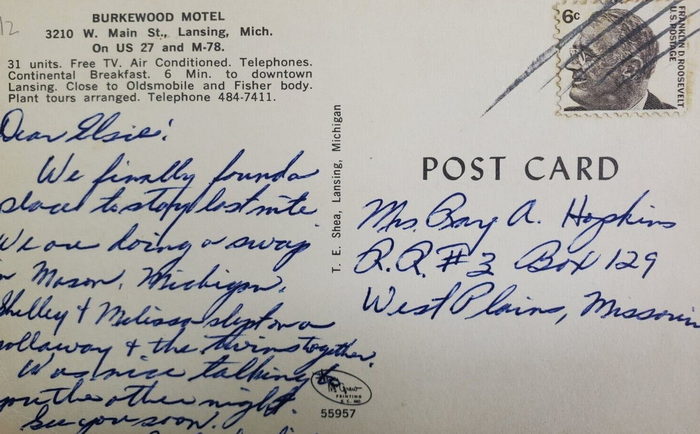 12
BURKEWOOD MOTEL
3210 W. Main St., Lansing, Mich.
On US 27 and M-78.
31 units. Free TV. Air Conditioned. Telephones.
Continental Breakfast. 6 Min. to downtown
Lansing. Close to Oldsmobile and Fisher body.
Plant tours arranged. Telephone 484-7411.
Dear Elsie:
We finally found a
place to stop last nite
We are doing a swap
in Mason, Michigan.
Shelley & Melissa slept on a
rollaway & the twins together.
Was nice talking to
you the other night.
See you soon.
T. E. Shea, Lansing, Michigan
PRINTING
55957
6c
FRANKLIN D. ROOSEVELT
U.S. POSTAGE
POST CARD
Mrs. Ray A. Hopkins
R.R. #3 Box 129
West Plains, Missouri